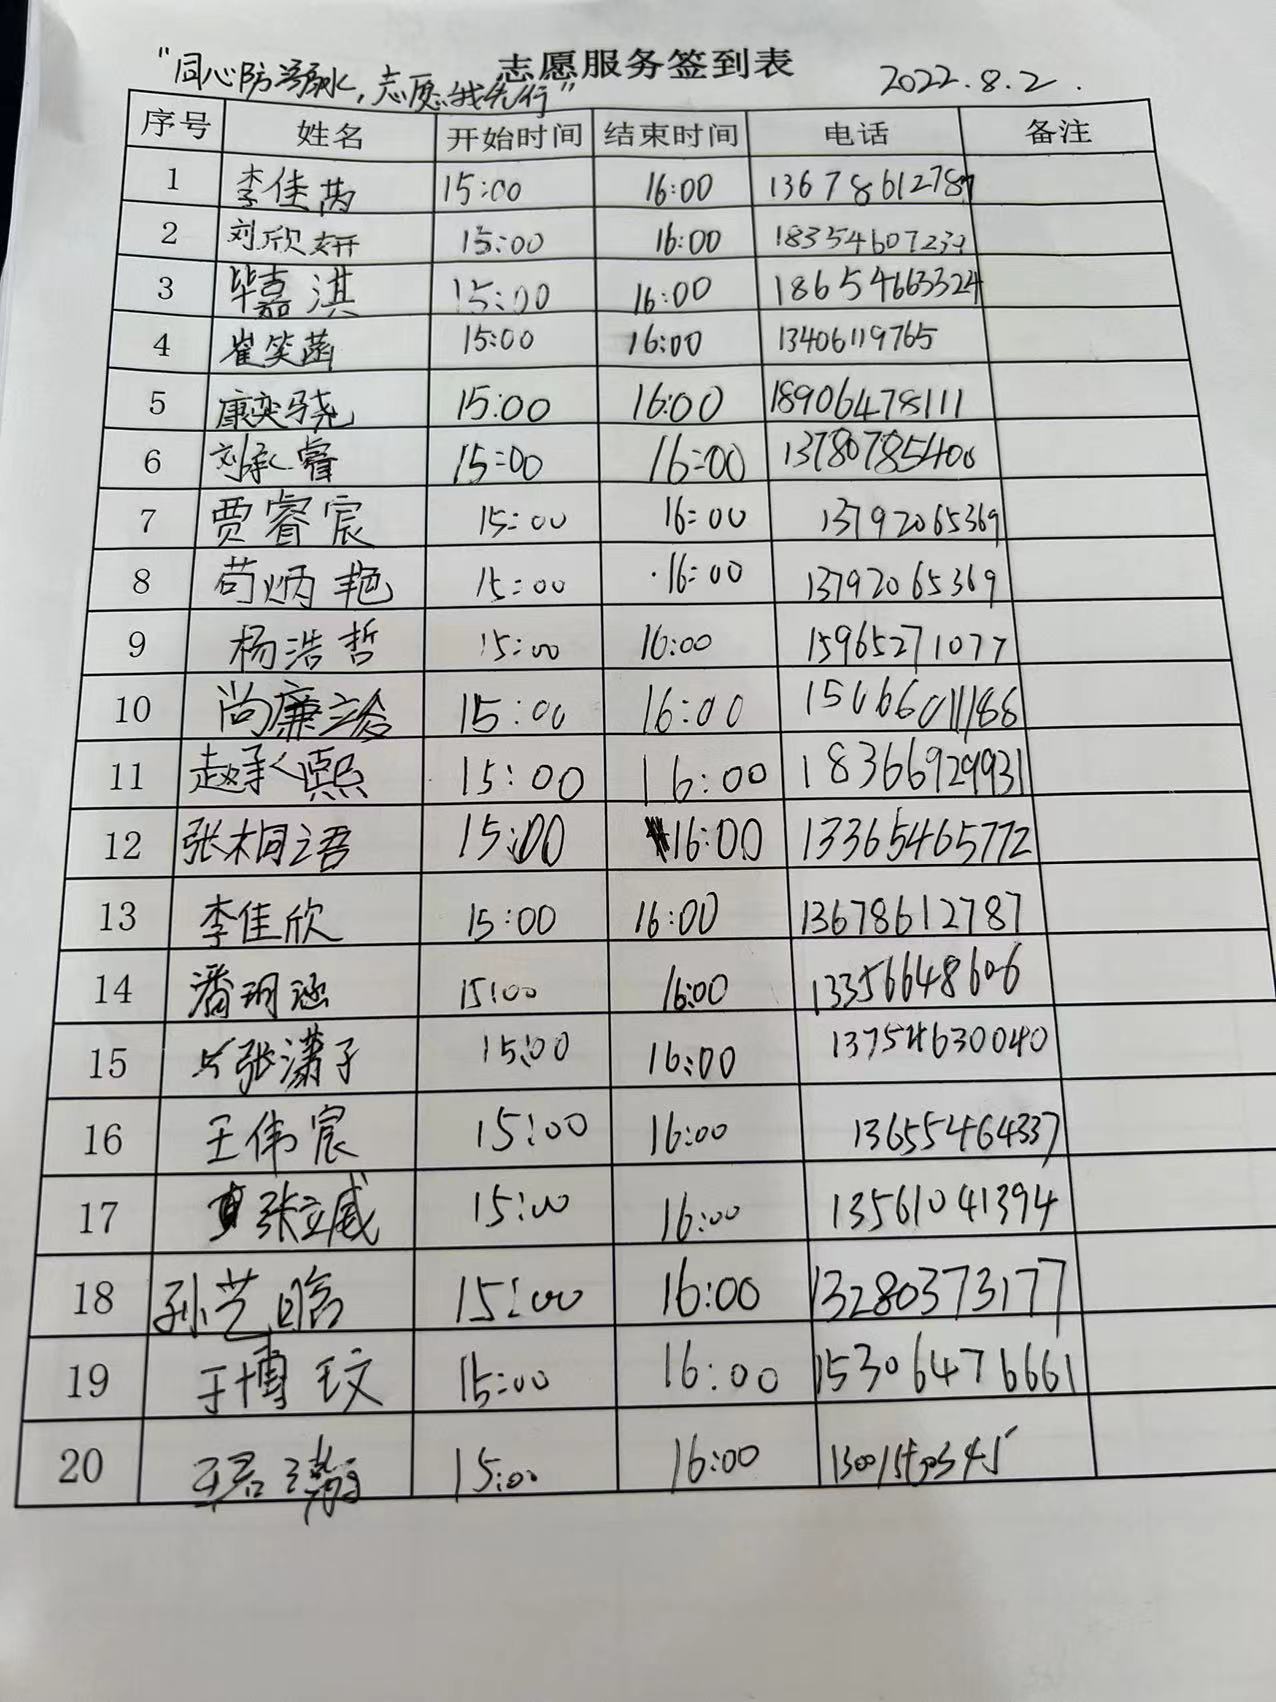 志愿服务签到表
"同心防溺水,志愿我先行" 2022.8.2.
序号 姓名 开始时间 结束时间 电话 备注
1 李佳芮 15:00 16:00 13678612787
2 刘欣妍 15:00 16:00 18354607239
3 毕嘉淇 15:00 16:00 18654663324
4 崔笑菡 15:00 16:00 13406119765
5 康奕骁 15:00 16:00 18906478111
6 刘承睿 15:00 16:00 13780785400
7 贾睿宸 15:00 16:00 13792065369
8 苟炳艳 15:00 16:00 13792065369
9 杨浩哲 15:00 16:00 15965271077
10 尚廉洽 15:00 16:00 15066011188
11 赵承熙 15:00 16:00 18366929931
12 张桐语 15:00 16:00 13365465772
13 李佳欣 15:00 16:00 13678612787
14 潘玥涵 15:00 16:00 13356648606
15 张潇予 15:00 16:00 13754630040
16 王伟宸 15:00 16:00 13655464337
17 张立威 15:00 16:00 13561041394
18 孙艺晗 15:00 16:00 13280373177
19 于博玟 15:00 16:00 15306476661
20 15:00 16:00